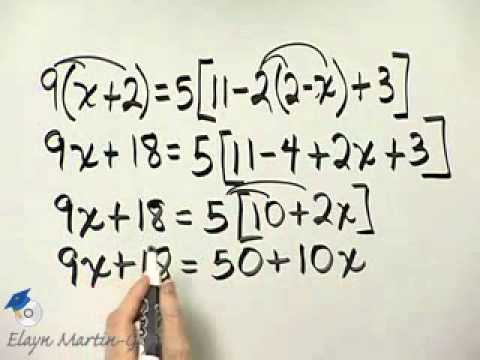 9(x+2)=5[11-2(2-x)+3]
9x+18=5[11-4+2x+3]
9x+18=5[10+2x]
9x+18=50+10x
Elayn Martin-G